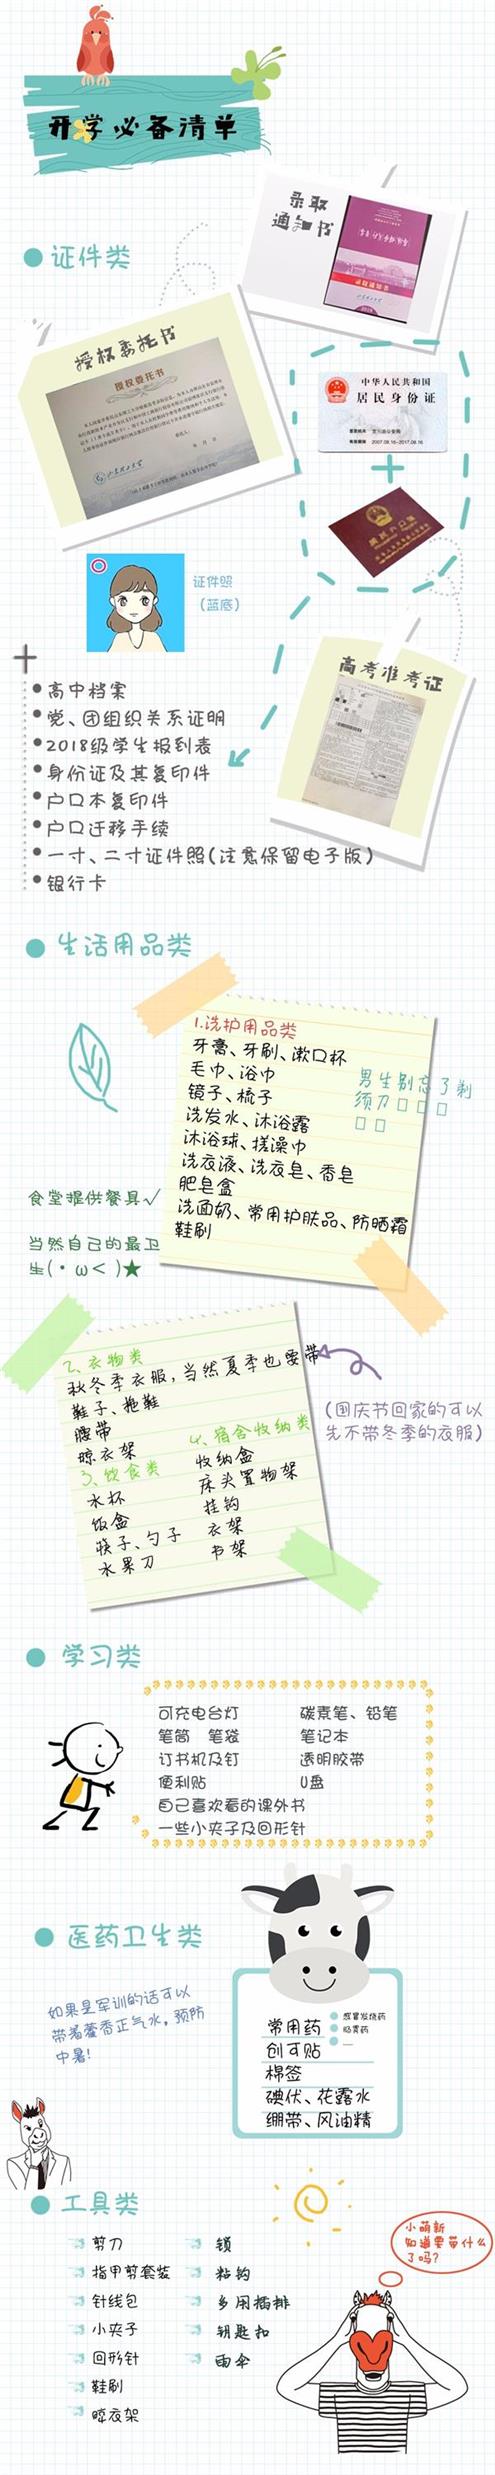 开学必备清单
录取
通知书
录取通知书
证件类
授权委托书
授权委托书
中华人民共和国
居民身份证
证件照
（蓝底）
高考准考证
高中档案
党、团组织关系证明
2018级学生报到表
身份证及其复印件
户口本复印件
户口迁移手续
一寸、二寸证件照(注意保留电子版)
银行卡
生活用品类
1.洗护用品类
牙膏、牙刷、漱口杯
毛巾、浴巾
镜子、梳子
洗发水、沐浴露
沐浴球、搓澡巾
洗衣液、洗衣皂、香皂
肥皂盒
洗面奶、常用护肤品、防晒霜
鞋刷
男生别忘了剃
须刀□□□
□□
食堂提供餐具√
当然自己的最卫
生(・ω< )★
2、衣物类
秋冬季衣服，当然夏季也要带
鞋子、拖鞋
腰带
晾衣架
3、饮食类
水杯
饭盒
筷子、勺子
水果刀
4、宿舍收纳类
收纳盒
床头置物架
挂钩
衣架
书架
(国庆节回家的可以
先不带冬季的衣服)
学习类
可充电台灯 碳素笔、铅笔
笔筒 笔袋 笔记本
订书机及钉 透明胶带
便利贴 U盘
自己喜欢看的课外书
一些小夹子及回形针
医药卫生类
如果是军训的话可以
带着藿香正气水，预防
中暑!
常用药
感冒发烧药
肠胃药
创可贴
棉签
碘伏、花露水
绷带、风油精
工具类
剪刀
指甲剪套装
针线包
小夹子
回形针
鞋刷
晾衣架
锁
粘钩
多用插排
钥匙扣
雨伞
小萌新
知道要带什么
了吗?